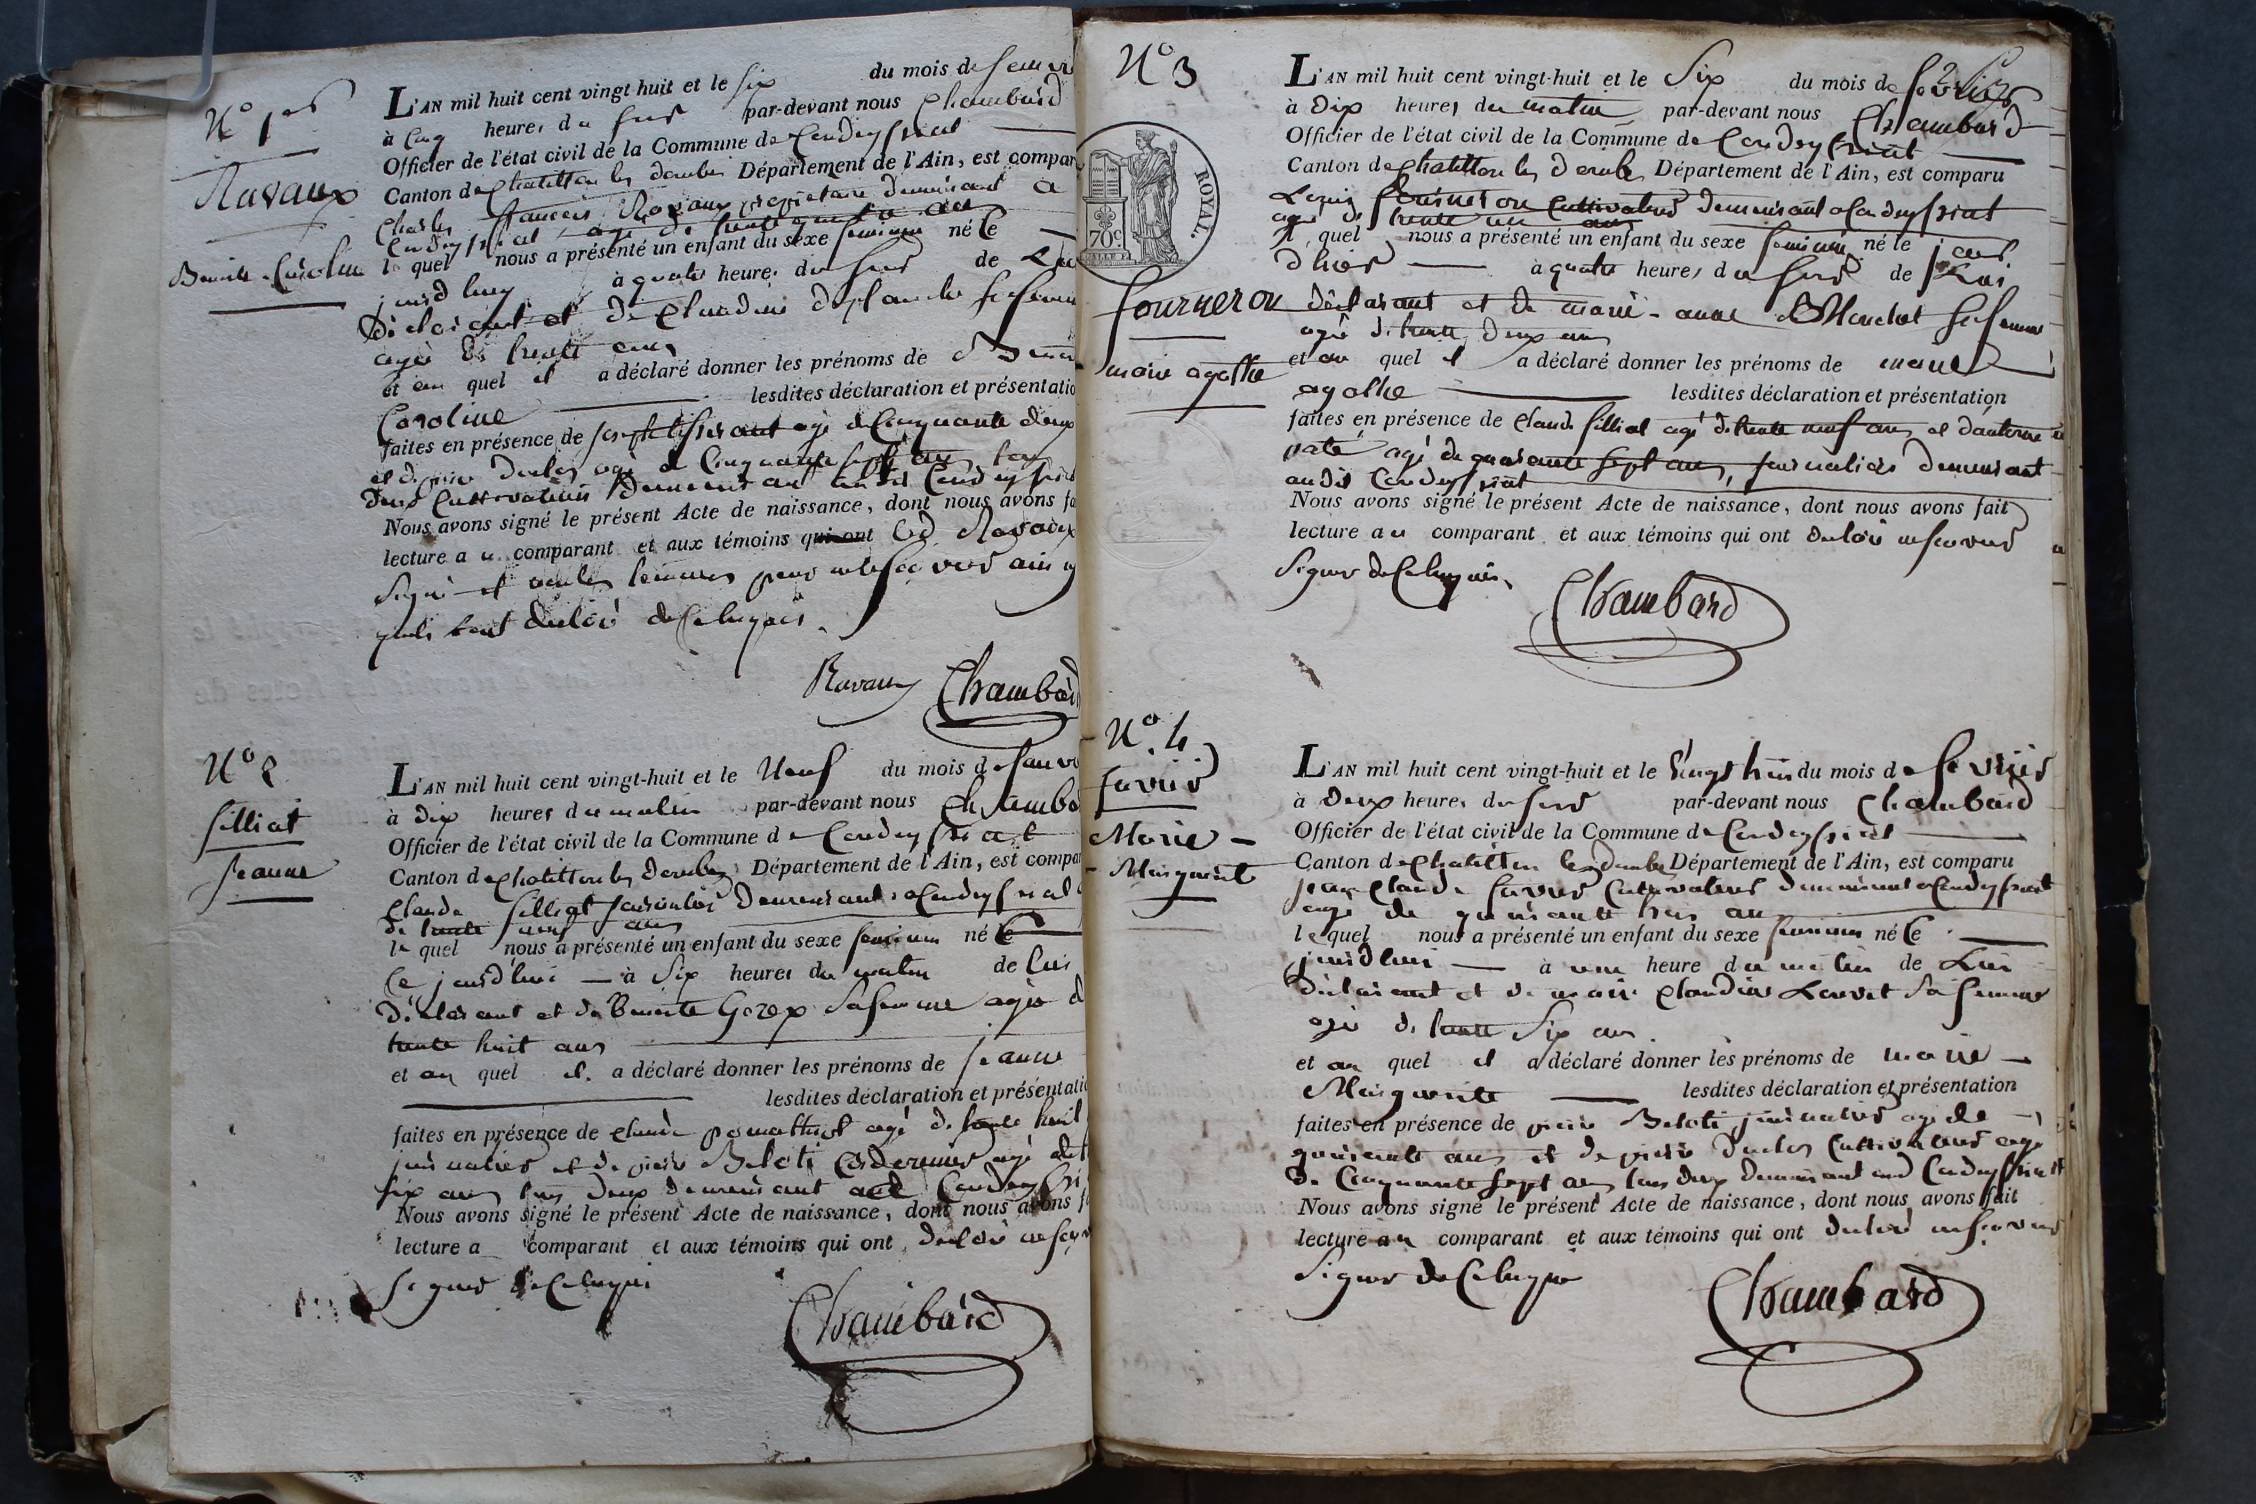 N° 1er
Ravaux
Benoite Caroline
L'AN mil huit cent vingt-huit et le six du mois de Janvie
à Cinq heures du soir par-devant nous Chambard
Officier de l'état civil de la Commune de Condeyssiat
Canton de Chatillon les dombes Département de l'Ain, est compar
Charles francois Ravaux propriétaire demeurant a
Condeyssiat agé de trente ans
le quel nous a présenté un enfant du sexe feminin né Ce
jourdhuy à quatre heures du soir de Lui
déclarant et de Claudine desplanches sa femme
agée de trente ans
et au quel il a déclaré donner les prénoms de Benoite
Caroline lesdites déclaration et présentatio
faites en présence de joseph tisserant agé de Cinquante deux
et de pierre duclos agé de Cinquante sept ans tous
deux Cultivateurs demeurant audit Condeyssiat
Nous avons signé le présent Acte de naissance, dont nous avons fa
lecture au comparant et aux témoins qui ont led Ravaux
Signé et non les temoins pour ne le scavoir ainsi
quils lont déclaré de Ce Enquis.
Ravaux Chambard
N° 2
Silliat
Jeanne
L'AN mil huit cent vingt-huit et le Neuf du mois de Janvi
à dix heures du matin par-devant nous Chambar
Officier de l'état civil de la Commune de Condeyssiat
Canton de Chatillon les dombes Département de l'Ain, est compar
Claude Silliat journalier demeurant a Condeyssiat
de trente neuf ans
le quel nous a présenté un enfant du sexe feminin né le
Ce jourdhui à Six heures du matin de Lui
déclarant et de Benoite Gorex Sa femme agée d
trente huit ans
et au quel il a déclaré donner les prénoms de Jeanne
lesdites déclaration et présentatio
faites en présence de Claude pomathiot agé de trente huit
journalier et de pierre Beloti Cordonnier agé de
six ans tous deux demeurant aud Condeyssi
Nous avons signé le présent Acte de naissance, dont nous avons f
lecture a comparant et aux témoins qui ont déclaré ne scav
Signer de Ce Enquis
Chambard
N° 3
ROYAL.
70c
fourneron
marie agathe
L'AN mil huit cent vingt-huit et le Six du mois de fevrier
à Dix heures du matin par-devant nous Chambard
Officier de l'état civil de la Commune de Condeyssiat
Canton de Chatillon les dombes Département de l'Ain, est comparu
Louis fourneron Cultivateur demeurant a Condeyssiat
agé de trente un ans
le quel nous a présenté un enfant du sexe feminin né le jour
d'hier à quatre heures du soir de Lui
déclarant et de marie-anne Blanchot sa femme
agée de trente deux ans
et au quel il a déclaré donner les prénoms de marie
agathe lesdites déclaration et présentation
faites en présence de Claude Silliat agé de trente neuf ans et d'antoine
paté agé de quarante sept ans, journaliers demeurant
audit Condeyssiat
Nous avons signé le présent Acte de naissance, dont nous avons fait
lecture au comparant et aux témoins qui ont déclaré ne scavoir
Signer de Ce Enquis.
Chambard
N° 4
favier
Marie
Marguerite
L'AN mil huit cent vingt-huit et le Vingt huit du mois de fevrier
à deux heures du soir par-devant nous Chambard
Officier de l'état civil de la Commune de Condeyssiat
Canton de Chatillon les dombes Département de l'Ain, est comparu
jean Claude favier Cultivateur demeurant a Condeyssiat
agé de quarante trois ans
le quel nous a présenté un enfant du sexe feminin né Ce
jourdhui à une heure du matin de Lui
déclarant et de marie Claudine Louvet Sa femme
agée de trente Six ans
et au quel il a déclaré donner les prénoms de marie
Marguerite lesdites déclaration et présentation
faites en présence de pierre Beloti journalier agé de
quarante ans et de pierre Duclos Cultivateur agé
de Cinquante Sept ans tous deux demeurant aud Condeyssiat
Nous avons signé le présent Acte de naissance, dont nous avons fait
lecture au comparant et aux témoins qui ont déclaré ne scavoir
Signer de Ce Enquis
Chambard